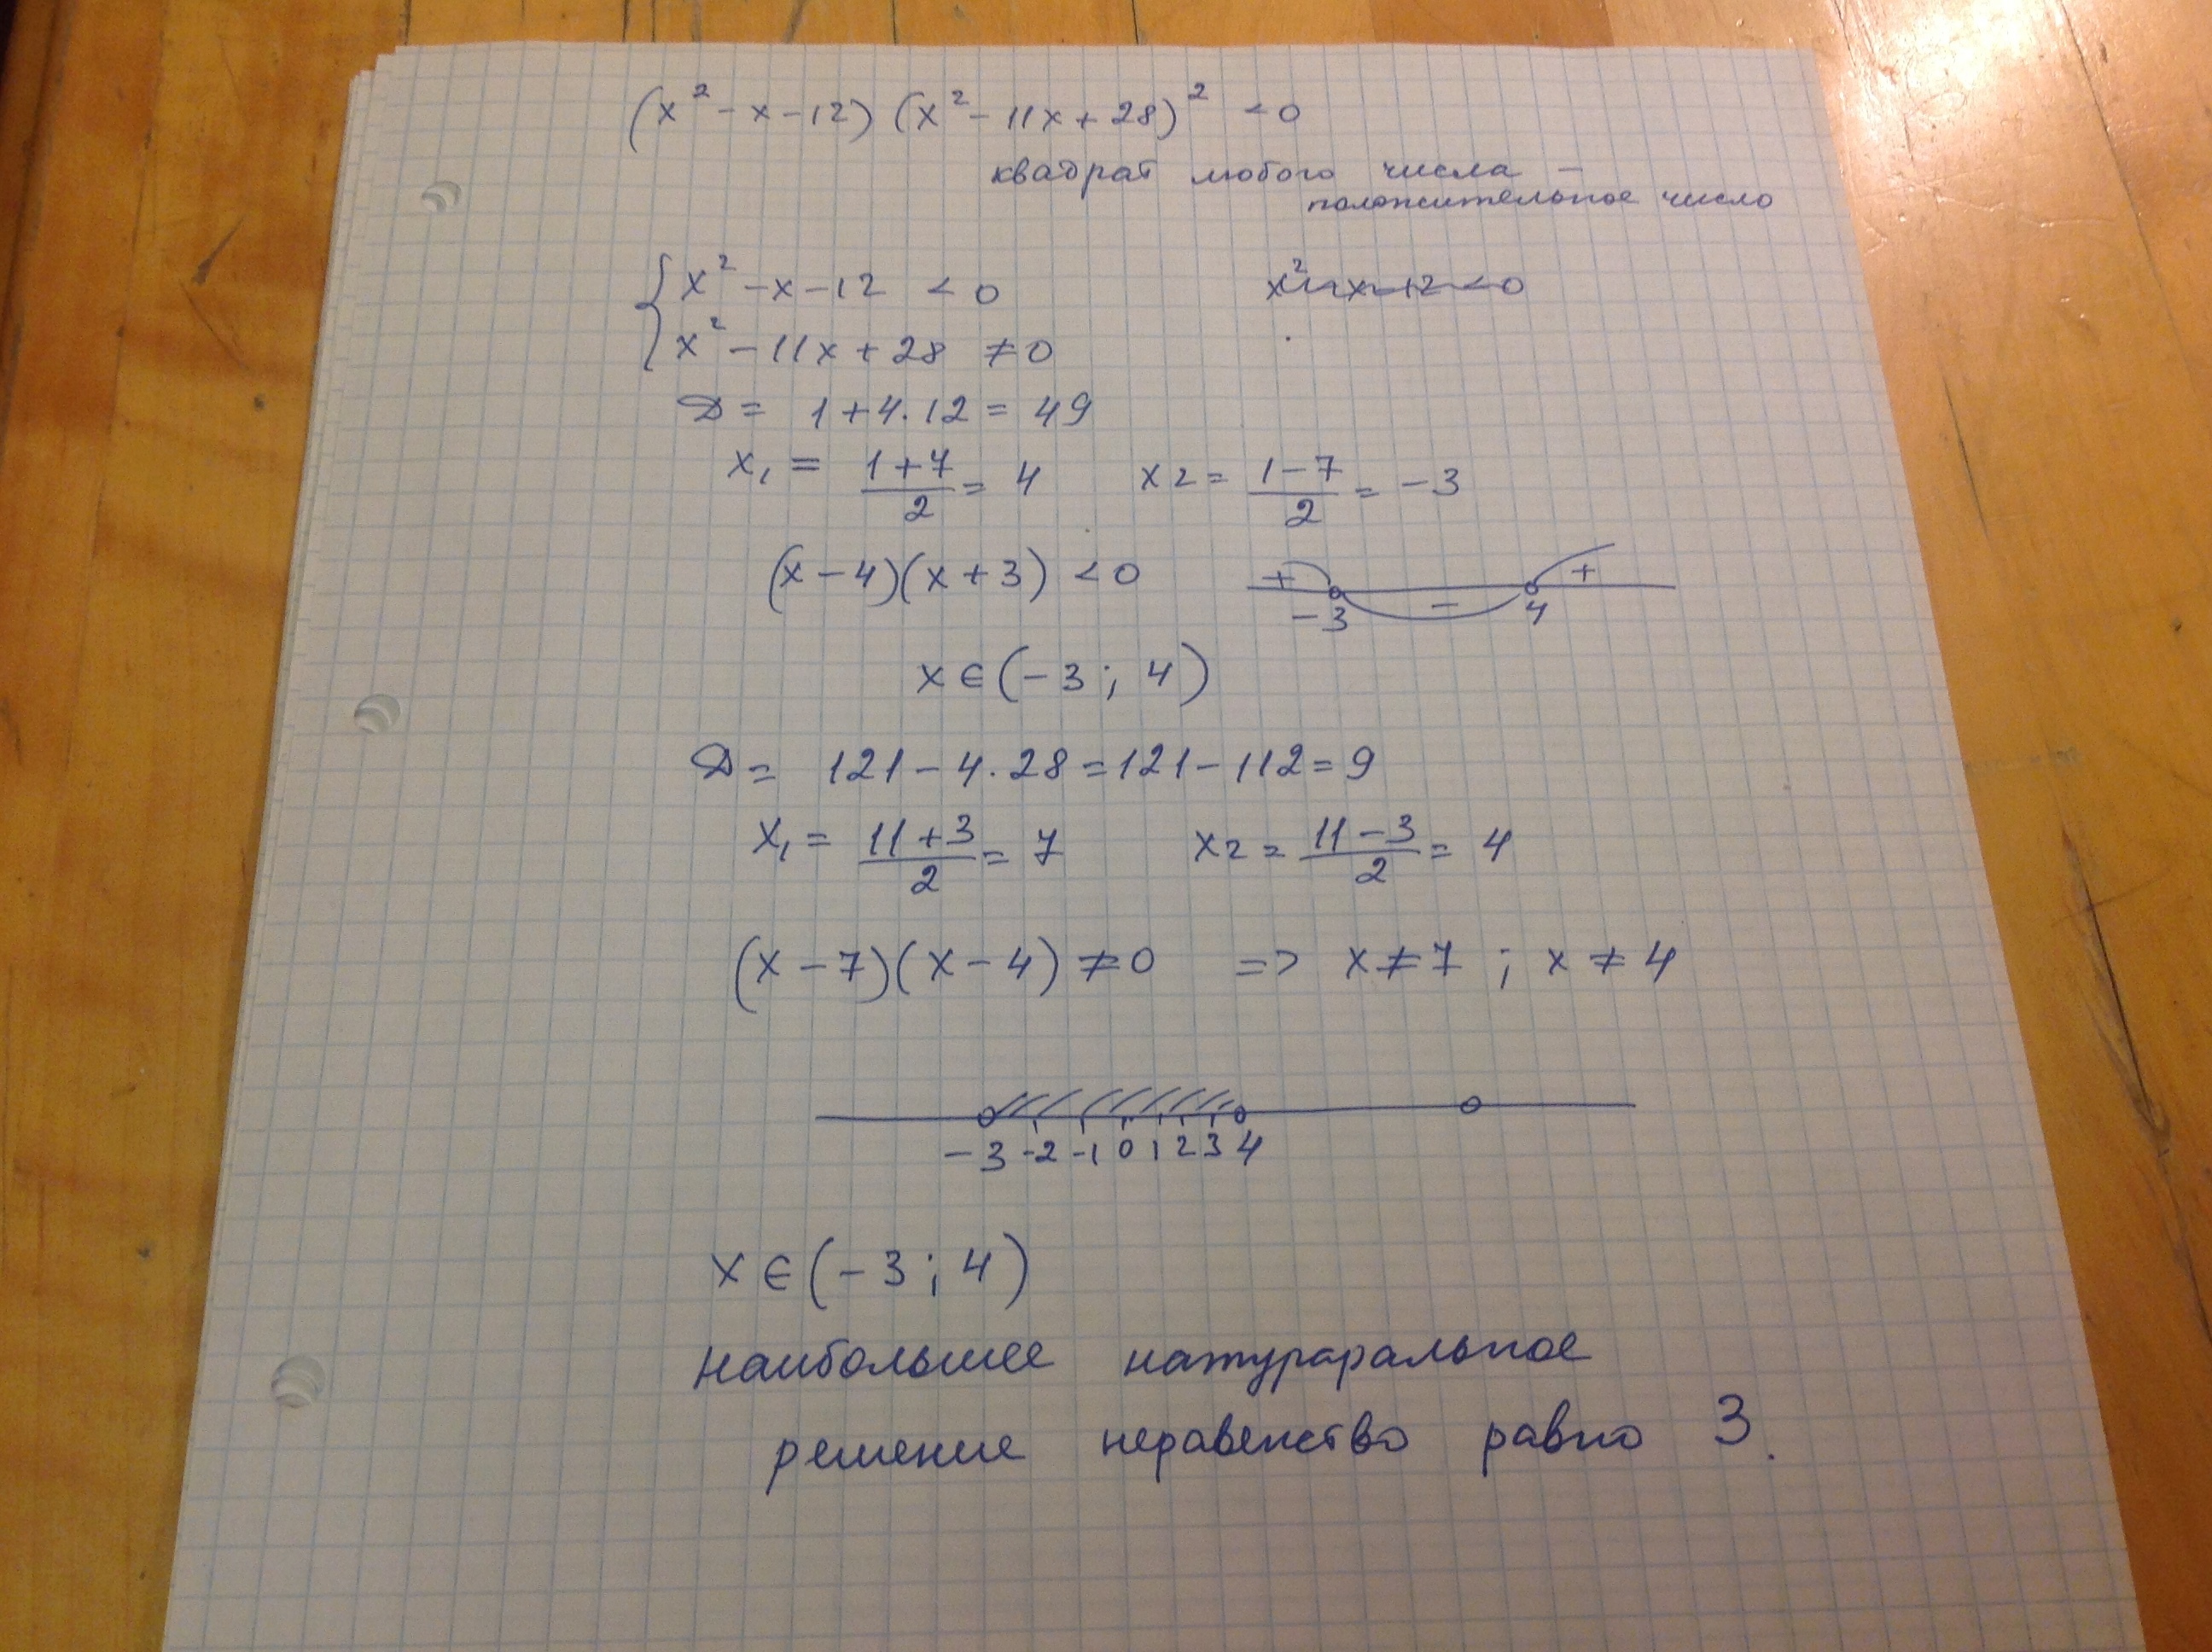 (x² - x - 12) (x² - 11x + 28)² < 0
квадрат любого числа –
положительное число
{ x² - x - 12 < 0
x² - x - 12 < 0
x² - 11x + 28 ≠ 0
D = 1 + 4 · 12 = 49
x₁ = (1 + 7)/2 = 4    x2 = (1 - 7)/2 = -3
(x - 4)(x + 3) < 0
+ - +
-3 4
x ∈ (-3 ; 4)
D = 121 - 4 · 28 = 121 - 112 = 9
x₁ = (11 + 3)/2 = 7    x2 = (11 - 3)/2 = 4
(x - 7)(x - 4) ≠ 0 => x ≠ 7 ; x ≠ 4
-3 -2 -1 0 1 2 3 4
x ∈ (-3 ; 4)
наибольшее натураральное
решение неравенство равно 3.